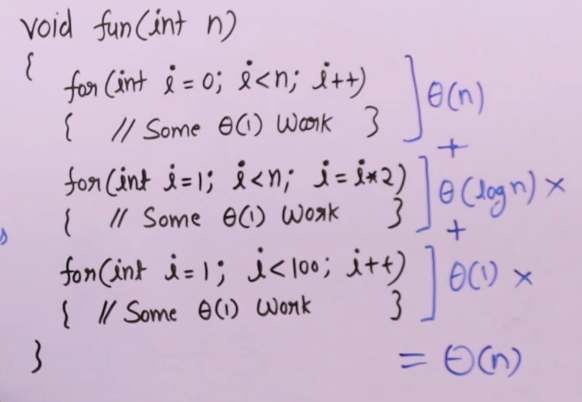 void fun(int n)
{
for(int i = 0; i<n; i++) ] θ(n)
{ // Some θ(1) Work }
+
for(int i=1; i<n; i=i*2) ] θ(logn) ×
{ // Some θ(1) Work }
+
for(int i=1; i<100; i++) ] θ(1) ×
{ // Some θ(1) Work }
}
= θ(n)